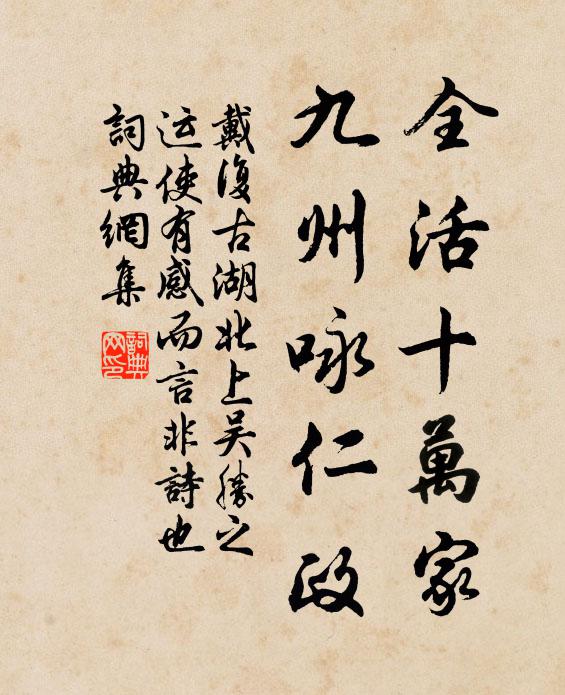 全活十萬家
九州咏仁政
戴復古湖北上吴勝之
运使有感而言非詩也
詞典網集
詞典
网印